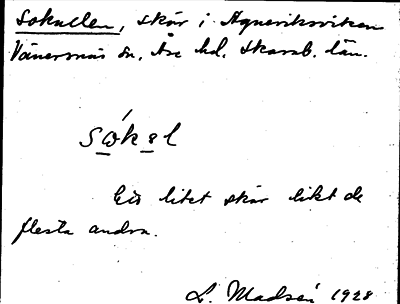 Sokullen, skär i Agneviksviken
Vänersnäs sn, Åse hd. Skarab. län.
sókel
Ett litet skär likt de
flesta andra.
L. Madsén 1928